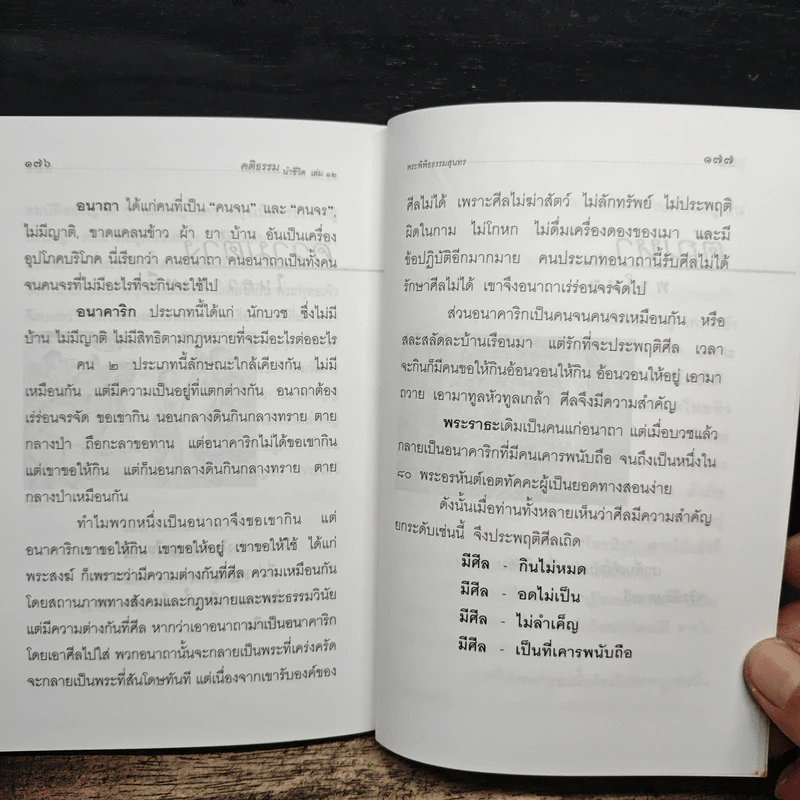 ๑๗๖
คติธรรม นำชีวิต เล่ม ๑๒
อนาถา ได้แก่คนที่เป็น "คนจน" และ "คนจร",
ไม่มีญาติ, ขาดแคลนข้าว ผ้า ยา บ้าน อันเป็นเครื่อง
อุปโภคบริโภค นี่เรียกว่า คนอนาถา คนอนาถาเป็นทั้งคน
จนคนจรที่ไม่มีอะไรที่จะกินจะใช้ไป
อนาคาริก ประเภทนี้ได้แก่ นักบวช ซึ่งไม่มี
บ้าน ไม่มีญาติ ไม่มีสิทธิตามกฎหมายที่จะมีอะไรต่ออะไร
คน ๒ ประเภทนี้ลักษณะใกล้เคียงกัน ไม่มี
เหมือนกัน แต่มีความเป็นอยู่ที่แตกต่างกัน อนาถาต้อง
เร่ร่อนจรจัด ขอเขากิน นอนกลางดินกินกลางทราย ตาย
กลางป่า ถือกะลาขอทาน แต่อนาคาริกไม่ได้ขอเขากิน
แต่เขาขอให้กิน แต่ก็นอนกลางดินกินกลางทราย ตาย
กลางป่าเหมือนกัน
ทำไมพวกหนึ่งเป็นอนาถาจึงขอเขากิน แต่
อนาคาริกเขาขอให้กิน เขาขอให้อยู่ เขาขอให้ใช้ ได้แก่
พระสงฆ์ ก็เพราะว่ามีความต่างกันที่ศีล ความเหมือนกัน
โดยสถานภาพทางสังคมและกฎหมายและพระธรรมวินัย
แต่มีความต่างกันที่ศีล หากว่าเอาอนาถามาเป็นอนาคาริก
โดยเอาศีลไปใส่ พวกอนาถานั้นจะกลายเป็นพระที่เคร่งครัด
จะกลายเป็นพระที่สันโดษทันที แต่เนื่องจากเขารับองค์ของ
พระพิพิธธรรมสุนทร
๑๗๗
ศีลไม่ได้ เพราะศีลไม่ฆ่าสัตว์ ไม่ลักทรัพย์ ไม่ประพฤติ
ผิดในกาม ไม่โกหก ไม่ดื่มเครื่องดองของเมา และมี
ข้อปฏิบัติอีกมากมาย คนประเภทอนาถานี้รับศีลไม่ได้
รักษาศีลไม่ได้ เขาจึงอนาถาเร่ร่อนจรจัดไป
ส่วนอนาคาริกเป็นคนจนคนจรเหมือนกัน หรือ
สละสลัดละบ้านเรือนมา แต่รักที่จะประพฤติศีล เวลา
จะกินก็มีคนขอให้กินอ้อนวอนให้กิน อ้อนวอนให้อยู่ เอามา
ถวาย เอามาทูลหัวทูลเกล้า ศีลจึงมีความสำคัญ
พระราธะเดิมเป็นคนแก่อนาถา แต่เมื่อบวชแล้ว
กลายเป็นอนาคาริกที่มีคนเคารพนับถือ จนถึงเป็นหนึ่งใน
๘๐ พระอรหันต์เอตทัคคะผู้เป็นยอดทางสอนง่าย
ดังนั้นเมื่อท่านทั้งหลายเห็นว่าศีลมีความสำคัญ
ยกระดับเช่นนี้ จึงประพฤติศีลเถิด
มีศีล - กินไม่หมด
มีศีล - อดไม่เป็น
มีศีล - ไม่ลำเค็ญ
มีศีล - เป็นที่เคารพนับถือ